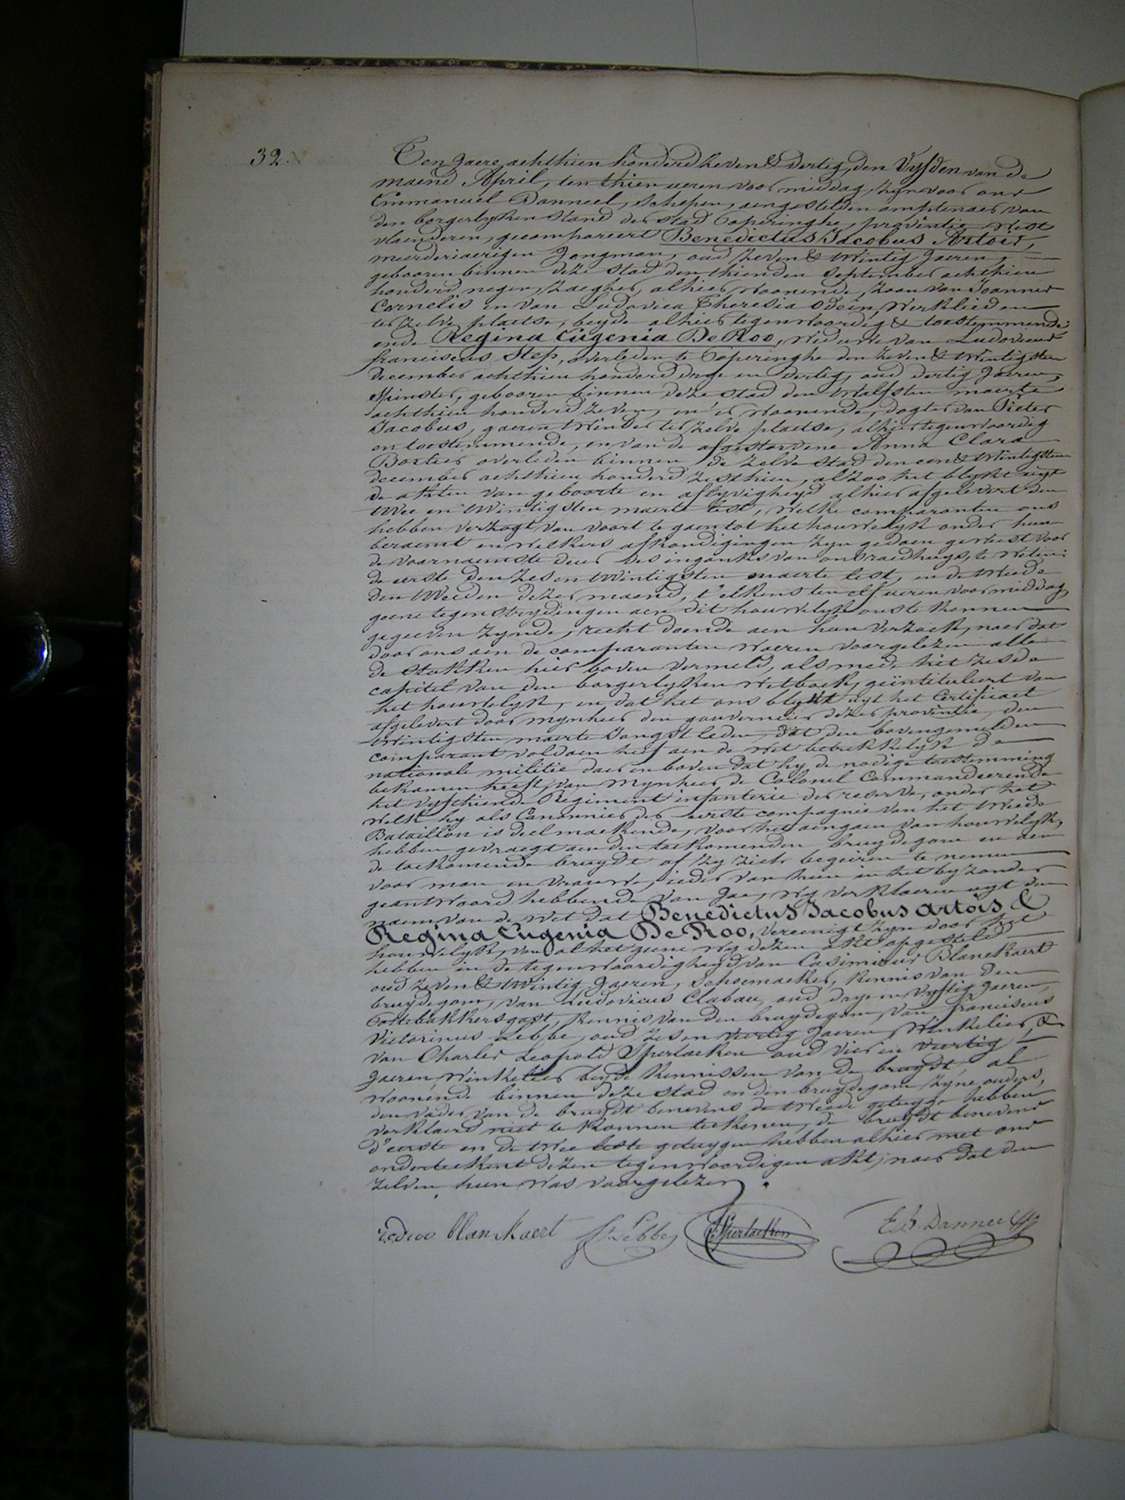 32.
Ten jaere achthien honderd zeven & dertig, den Vyfden van de
maend April, ten thien ueren voor middag, zyn voor ons
Emmanuel Danneel, Schepen, aengestelden amptenaer van
den borgerlyken stand der stad Poperinghe, provintie West
vlaenderen, gecompareert Benedictus Jacobus Artois,
meerderjaerigen Jongman, oud zeven & twintig Jaeren,
gebooren binnen deze stad den thienden September achthien
honderd negen, zaeger, alhier woonende, zoon van Joannes
Cornelis en van Ludovica Theresia Odein, werklieden
ter zelve plaetse, beyde alhier tegenwoordig & toestemmende
ende Regina Eugenia De Roo, weduwe van Ludovicus
franciscus Slep, overleden te Poperinghe den zeven & twintigsten
december achthien honderd drye en dertig, oud dertig Jaeren,
spinster, gebooren binnen deze stad den twalfsten maerte
achthien honderd zeven, en er woonende, dogter van Pieter
Jacobus, gaerentwinder ter zelve plaetse, alhier tegenwoordig
en toestemmende, en van de afgestorvene Anna Clara
Borteir overleden binnen de zelve stad den een & twintigsten
december achthien honderd zesthien, al zoo het blykt uyt
de akten van geboorte en aflyvigheyd alhier afgelevert den
twee en twintigsten maerte lest, welke comparanten ons
hebben verzogt van voort te gaen tot het houwelyk onder hun
beraemt en welkers afkondigingen zyn gedaen geweest voor
de voornaemste deur des ingangks van ons raedhuys, te weten:
de eerste den zes en twintigsten maerte lest, en de tweede
den tweeden dezer maend, t'elkens ten elf ueren voormiddag,
geene tegenstrydingen aen dit houwelyk ons te kennen
gegeeven zynde, recht doende aen hun verzoek, naer dat
door ons aen de comparanten waeren voorgelezen alle
de stukken hier boven vermeld, als mede het zesde
capitel van den borgerlyken wetboek, geïntituleert van
het houwelyk, en dat het ons blykt uyt het Certificaet
afgelevert door mynheer den gouverneur dezer provintie, den
twintigsten maerte Jongst leden, dat den bovengemelden
comparant voldaen heeft aen de wet betrekkelyk de
nationale militie daer en boven dat hy de nodige toestemming
bekomen heeft van Mynheer de Colonel Commandeerende
het vyfthiende Regiment infanterie der reserve, onder het
welk hy als Canonnier der eerste compagnie van het tweede
Bataillon is deel maekende, voor het aengaen van houwelyk,
hebben gevraegt aen den toekomenden bruydegom en aen
de toekomende bruydt of zy zich begeiren te nemen
voor man en vrouwe, ieder van hun in het byzonder
geantwoord hebbende van Jae, wy verklaeren uyt den
naem van de wet dat Benedictus Jacobus Artois &
Regina Eugenia De Roo, vereenigt zyn door het
houwelyk, van al het geene wy dezen akt opgesteld
hebben in de tegenwoordigheyd van Casimirus Blanckaert
oud zeven & twintig Jaeren, Schoemaeker, kennis van den
bruydegom, van Ludovicus Clabau, oud drye en vyftig Jaeren,
Pottebakkersgast, kennis van den bruydegom, van franciscus
Victorinus Lebbe, oud zes en veertig Jaeren Winkelier, &
van Charles Leopold Sperlaeken oud vier en veertig
Jaeren winkelier beide kennissen van de bruydt, al
woonende binnen deze stad en den bruydegom, zyne ouders,
den vader van de bruydt benevens de tweede getuyge hebben
verklaerd niet te konnen teekenen, de bruydt benevens
d'eerste en de twee leste getuygen hebben alhier met ons
onderteekent dezen tegenwoordigen akt, naer dat den
zelven hun was voorgelezen.
Blanckaert F. Lebbe Sperlaeken E. Danneel